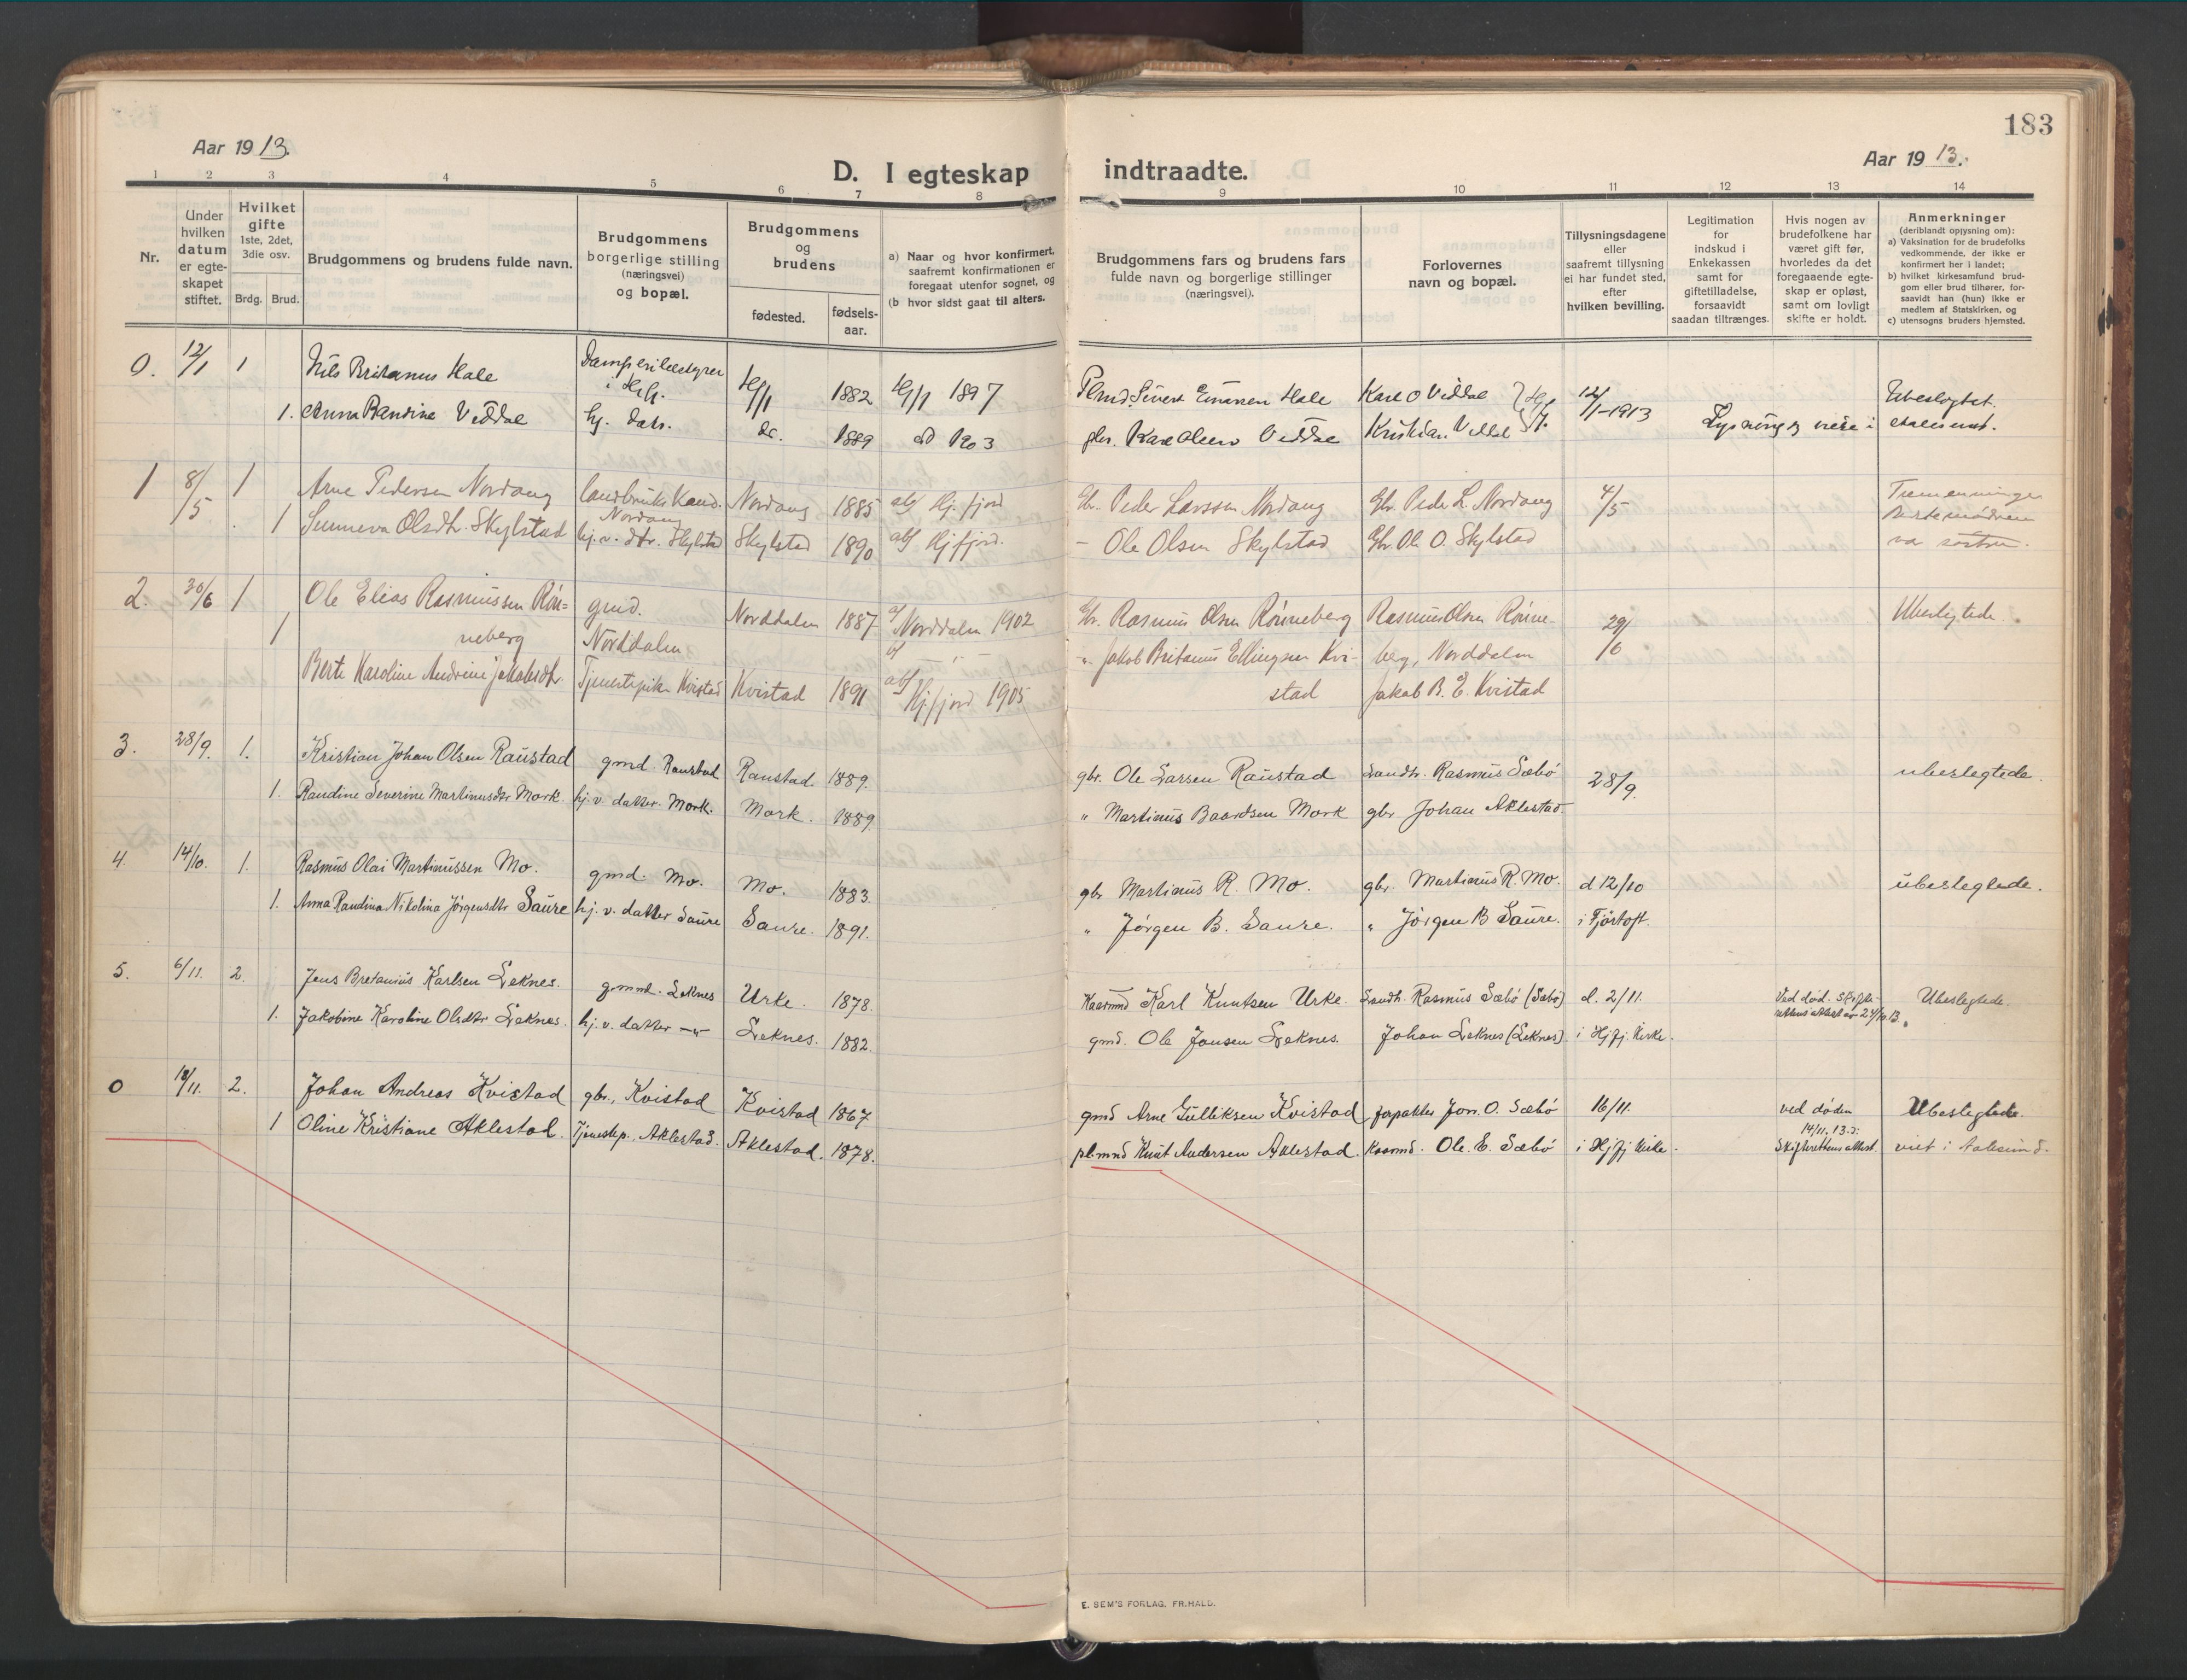 183
Aar 1913.
Aar 1913.
D. I egteskap indtraadte.
1 2 3 4 5 6 7 8 9 10 11 12 13 14
Nr.
Under hvilken datum er egte-skapet stiftet.
Hvilket gifte 1ste, 2det, 3die osv.
Brdg. Brud.
Brudgommens og brudens fulde navn.
Brudgommens borgerlige stilling (næringsvei) og bopæl.
Brudgommens og brudens
fødested.
fødsels-aar.
a) Naar og hvor konfirmert, saafremt konfirmationen er foregaat utenfor sognet, og
(b hvor sidst gaat til alters.
Brudgommens fars og brudens fars fulde navn og borgerlige stillinger (næringsvei).
Forlovernes navn og bopæl.
Tillysningsdagene eller saafremt tillysning ei har fundet sted, efter hvilken bevilling.
Legitimation for indskud i Enkekassen samt for giftetilladelse, forsaavidt saadan tiltrænges.
Hvis nogen av brudefolkene har været gift før, hvorledes da det foregaaende egte-skap er opløst, samt om lovligt skifte er holdt.
Anmerkninger (deriblandt opjysning om):
a) Vaksination for de brudefolks vedkommende, der ikke er konfirmert her i landet;
b) hvilket kirkesamfund brud-gom eller brud tilhører, for-saavidt han (hun) ikke er medlem af Statskirken, og
c) utensogns bruders hjemsted.
0. 12/1 1 Nils Britanus Hale 1882 1897 Sivert Hale Karl O Veddal 12/1-1913 Ubeslegtet.
1. Anna Randine Veddal hj. datr. do. 1889 1903 gbr. Karl Olsen Veddal Kristian Veddal Lysning og viede i Aalesund.
1 8/5 1 Arne Pedersen Nordang landbruks Kand. Nordang Nordang 1885 abf Hj. fjord Gbr. Peder Larssen Nordang Gbr. Peder L. Nordang 4/5 Tremenninger
1 Sunneva Olsdtr. Skylstad hj. v. dtr. Skylstad Skylstad 1890 abf Hj fjord. - Ole Olsen Skylstad Gbr. Ole O. Skylstad
2. 30/6 1 Ole Elias Rasmussen Røn= gmd. Norddalen 1887 Norddalen 1902 Gbr. Rasmus Olsen Rønneberg Rasmus Olsen Rønne- 29/6 Ubeslegtede.
1 neberg Norddalen " Jakob Britanus Ellingsen Kvi- berg, Norddalen
Berte Karoline Andrine Jakobsdtr. Tjenestepike Kvistad Kvistad 1891 abf Hj. fjord 1905 stad Jakob B. E. Kvistad
3. 28/9. 1. Kristian Johan Olsen Raustad gmd. Raustad Raustad. 1889. gbr. Ole Larsen Raustad Landh. Rasmus Sæbø 28/9. ubeslegtede.
1. Randine Severine Martinusdtr Mork. hj. v. datter. Mork. Mork. 1889. " Martinus Baardsen Mork gbr. Johan Aklestad.
4. 14/10. 1. Rasmus Olai Martinussen Mo. gmd. Mo. Mo. 1883. gbr Martinus R. Mo. gbr. Martinus R. Mo. d 12/10 ubeslegtede.
1. Anna Randina Nikolina Jørgensdtr Saure hj. v. datter Saure Saure. 1891. " Jørgen B. Saure. " Jørgen B Saure. i Fjørtoft.
5. 6/11. 2. Jens Bretanius Karlsen Leknes. gmd. Leknes Urke. 1878. Kaarmd Karl Knutsen Urke. Landh. Rasmus Sæbø (Sæbø) d. 2/11. Ved død. Skifte- Ubeslegtede.
1. Jakobine Karoline Olsdtr Leknes. hj. v. datter -"- Leknes. 1882. gmd. Ole Jansen Leknes. Johan Leknes (Leknes) i Hj fj. kirke. rettens attest av 24/10 13.
0 18/11. 2. Johan Andreas Kvistad gbr., Kvistad Kvistad 1867 gmd Arne Gulliksen Kvistad forpakter Jon. O. Sæbø 16/11. ved døden Ubeslegtede.
14/11. 13.
1 Oline Kristiane Aklestad. Tjenestep. Aklestad. Aklestad. 1878. plmnd Knut Andersen Aklestad. Kaarmd. Ole. E. Sæbø i Hj fj kirke. Skifterettens attest. viet i Aalesund.
E. SEM'S FORLAG, FR.HALD.